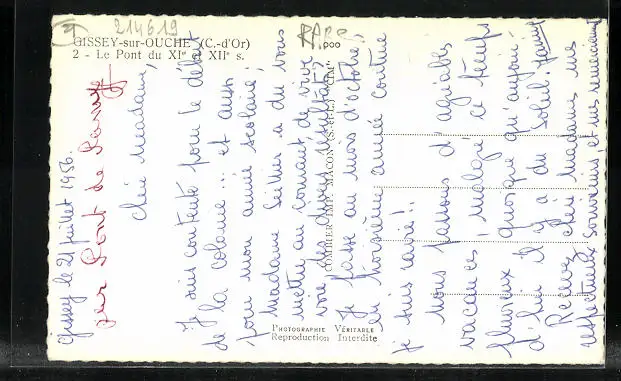 214619
RARE
GISSEY-sur-OUCHE (C.-d'Or)
2 - Le Pont du XIe et XIIe s.
COMBIER IMP. MACON (S.-et-L.) "CIM"
PHOTOGRAPHIE VÉRITABLE
Reproduction Interdite
Gissey le 21 juillet 1956.
par Pont de
Chère Madame,
Je suis contente pour le début
de la colonie... et aussi
pour mon année scolaire;
Madame a du vous
mettre au courant de vive
voix des divers résultats,
Je passe au mois d'octobre,
en troisième année couture
je suis ravie!!
Nous passons d'agréables
vacances, malgré ce temps
pluvieux quoique qu'aujour-
d'hui il y a du soleil.
Recevez chère Madame mes
respectueux souvenirs et mes remerciements